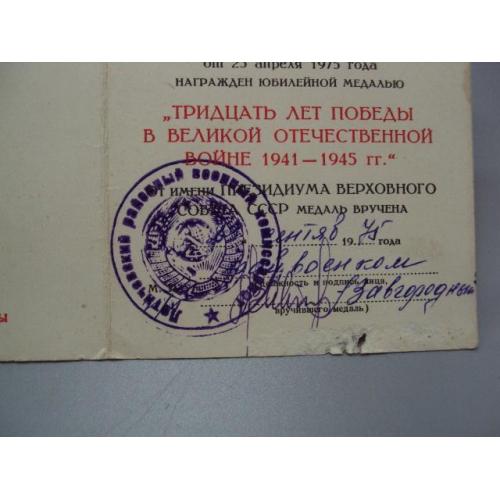 от 25 апреля 1975 года
НАГРАЖДЕН ЮБИЛЕЙНОЙ МЕДАЛЬЮ
„ТРИДЦАТЬ ЛЕТ ПОБЕДЫ
В ВЕЛИКОЙ ОТЕЧЕСТВЕННОЙ
ВОЙНЕ 1941—1945 гг.“
от имени ПРЕЗИДИУМА ВЕРХОВНОГО
СОВЕТА СССР МЕДАЛЬ ВРУЧЕНА
1975 года
райвоенком
М. П.
(должность и подпись лица,
Завгородный
вручившего медаль)
районный военный комиссариат
ы